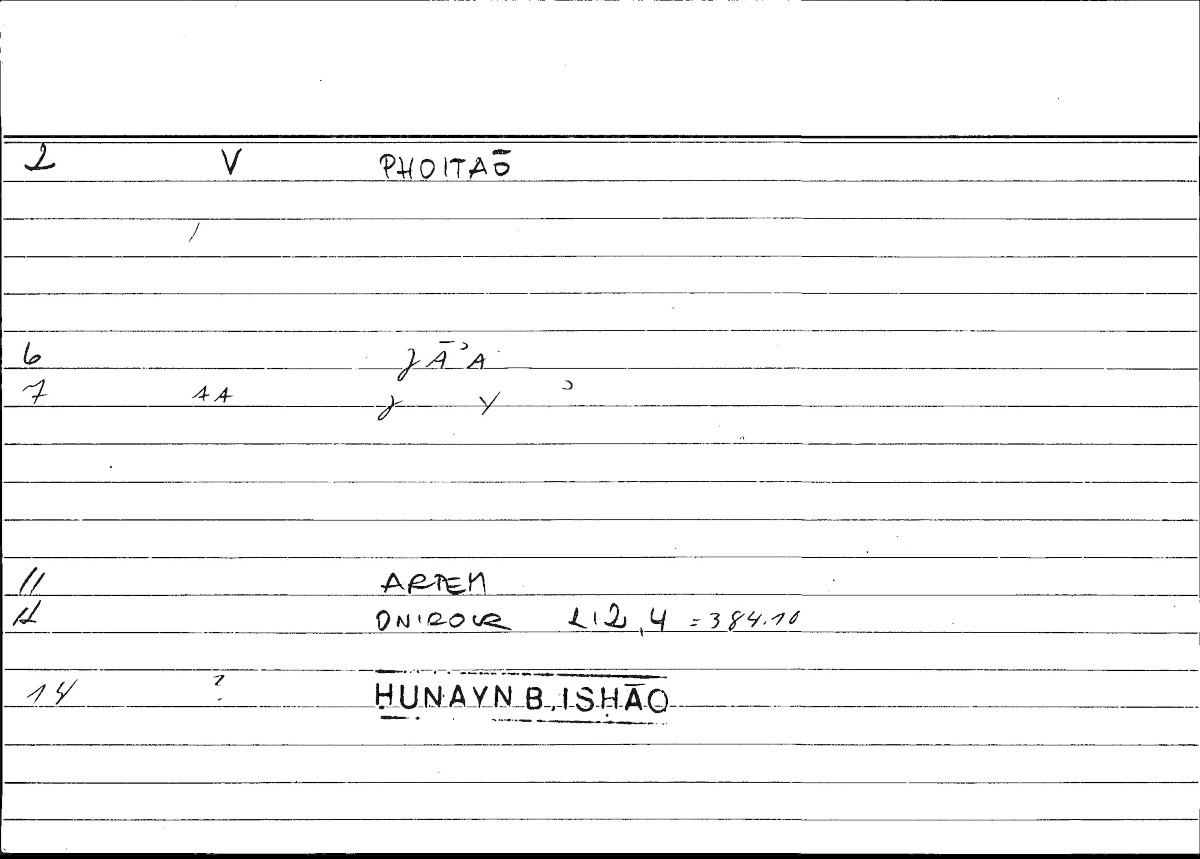 2 V PHOITAŌ
6 JĀʾA
7 1A J Y ʾ
11 ARTEM
12 ONIROCR 212,4 = 384.10
14 ? ḤUNAYN B. ISḤĀQ